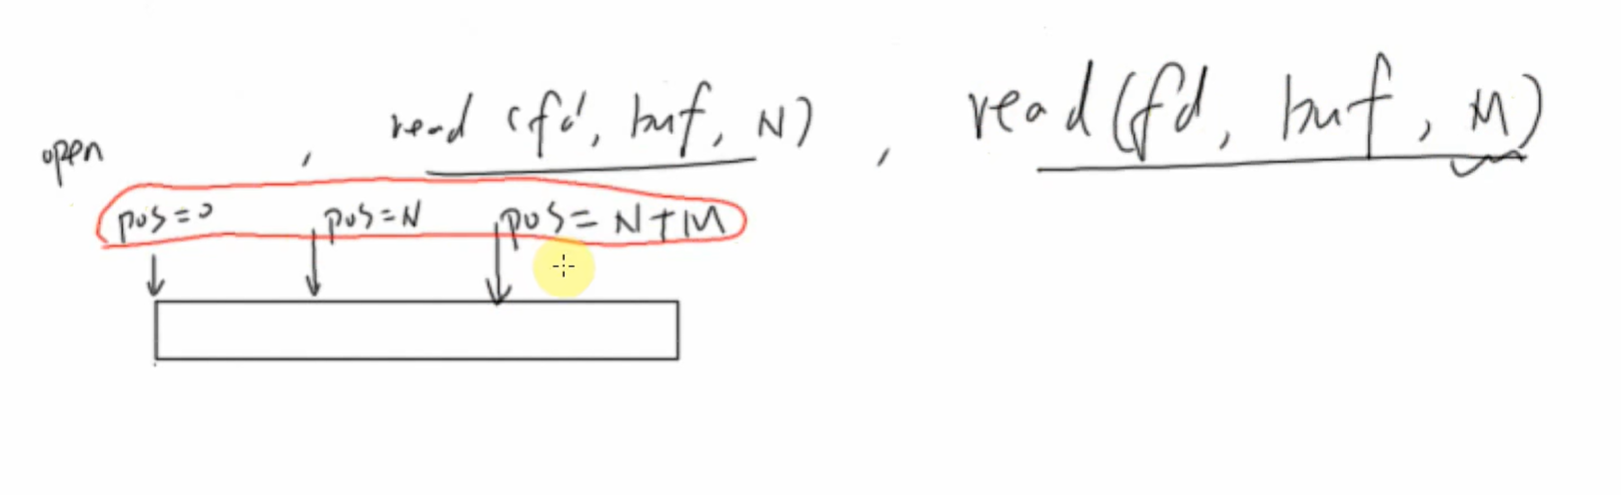 open , read (fd, buf, N) , read(fd, buf, M)
pos=0 pos=N pos=N+M